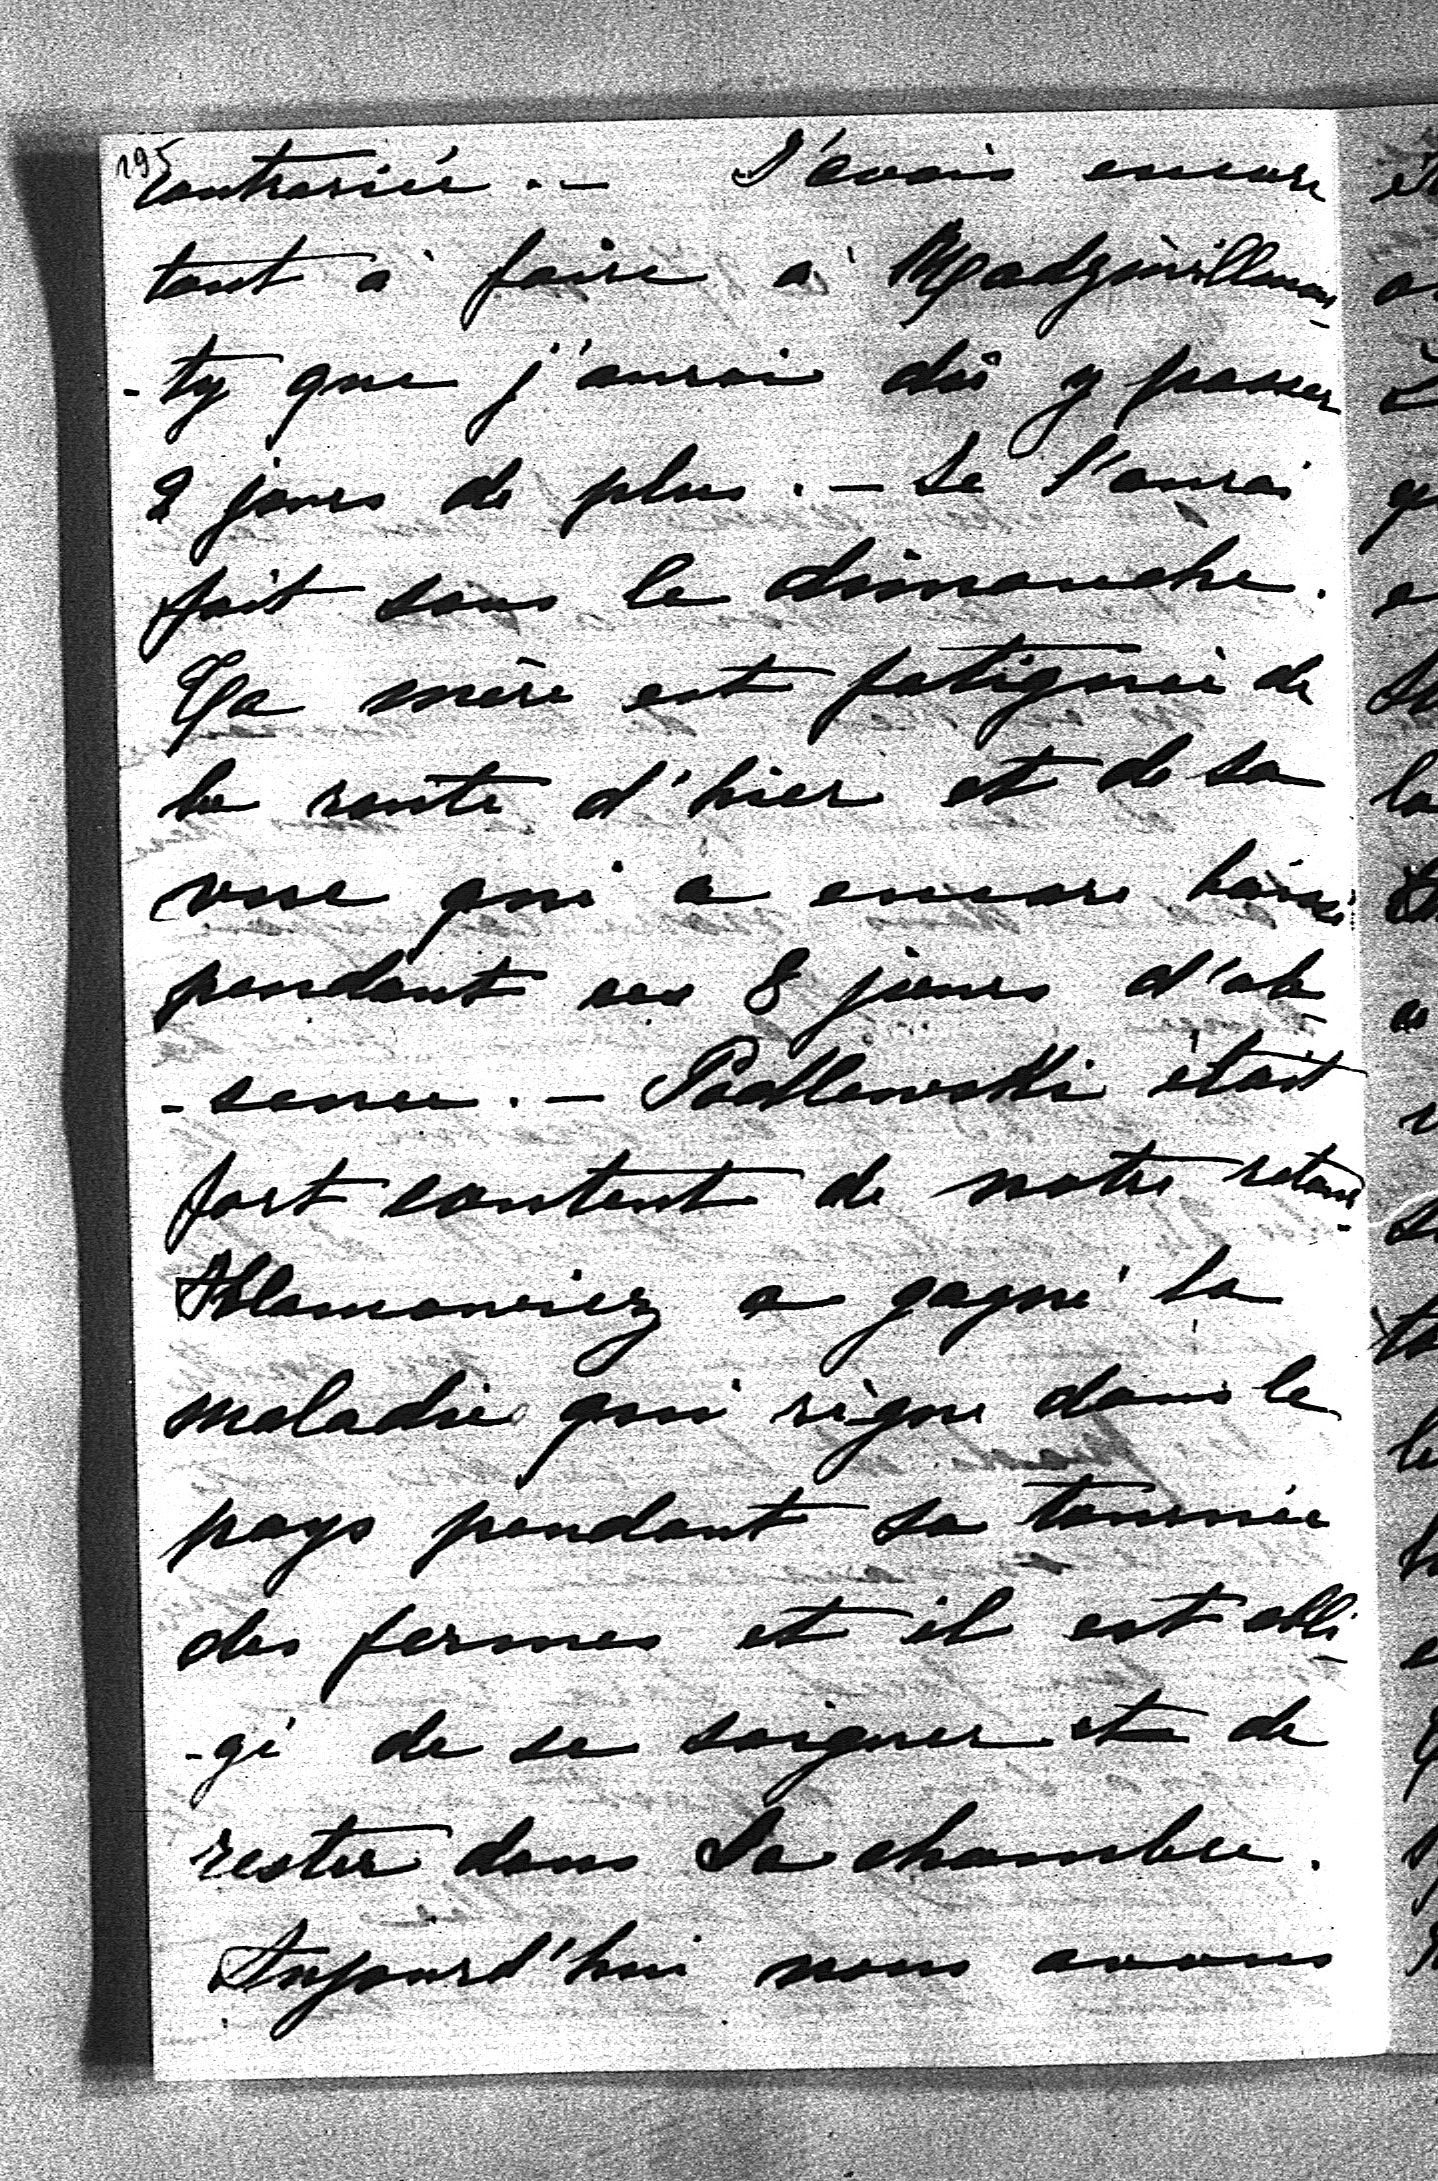 195
contrariée. — J'avais encore
tant à faire à Radziwillmon-
-ty que j'aurai dû y passer
2 jours de plus. — Je l'aurai
fait sans le dimanche.
Ta mère est fatiguée de
la route d'hier et de sa
vue qui a encore baissé
pendant ses 8 jours d'ab-
-sence. — Podlewski était
fort content de notre retour.
Adamowicz a gagné la
maladie qui règne dans le
pays pendant sa tournée
des fermes et il est obli-
-gé de se soigner et de
rester dans sa chambre.
Aujourd'hui nous avons